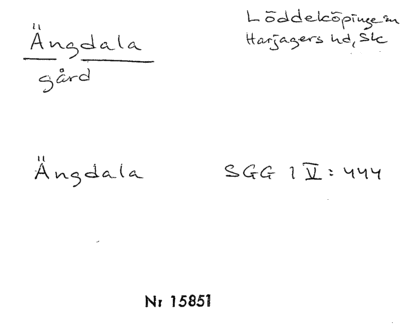 Ängdala
gård
Löddeköpinge sn
Harjagers hd, Sk
Ängdala
SGG 1 V: 444
Nr 15851